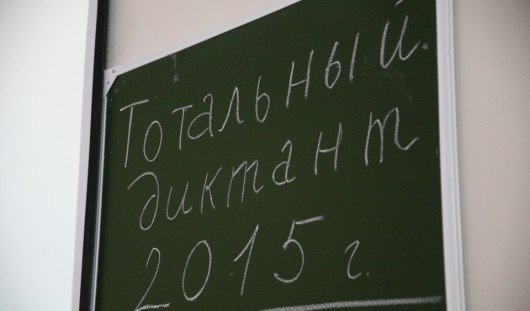 Тотальный
диктант
2015 г.